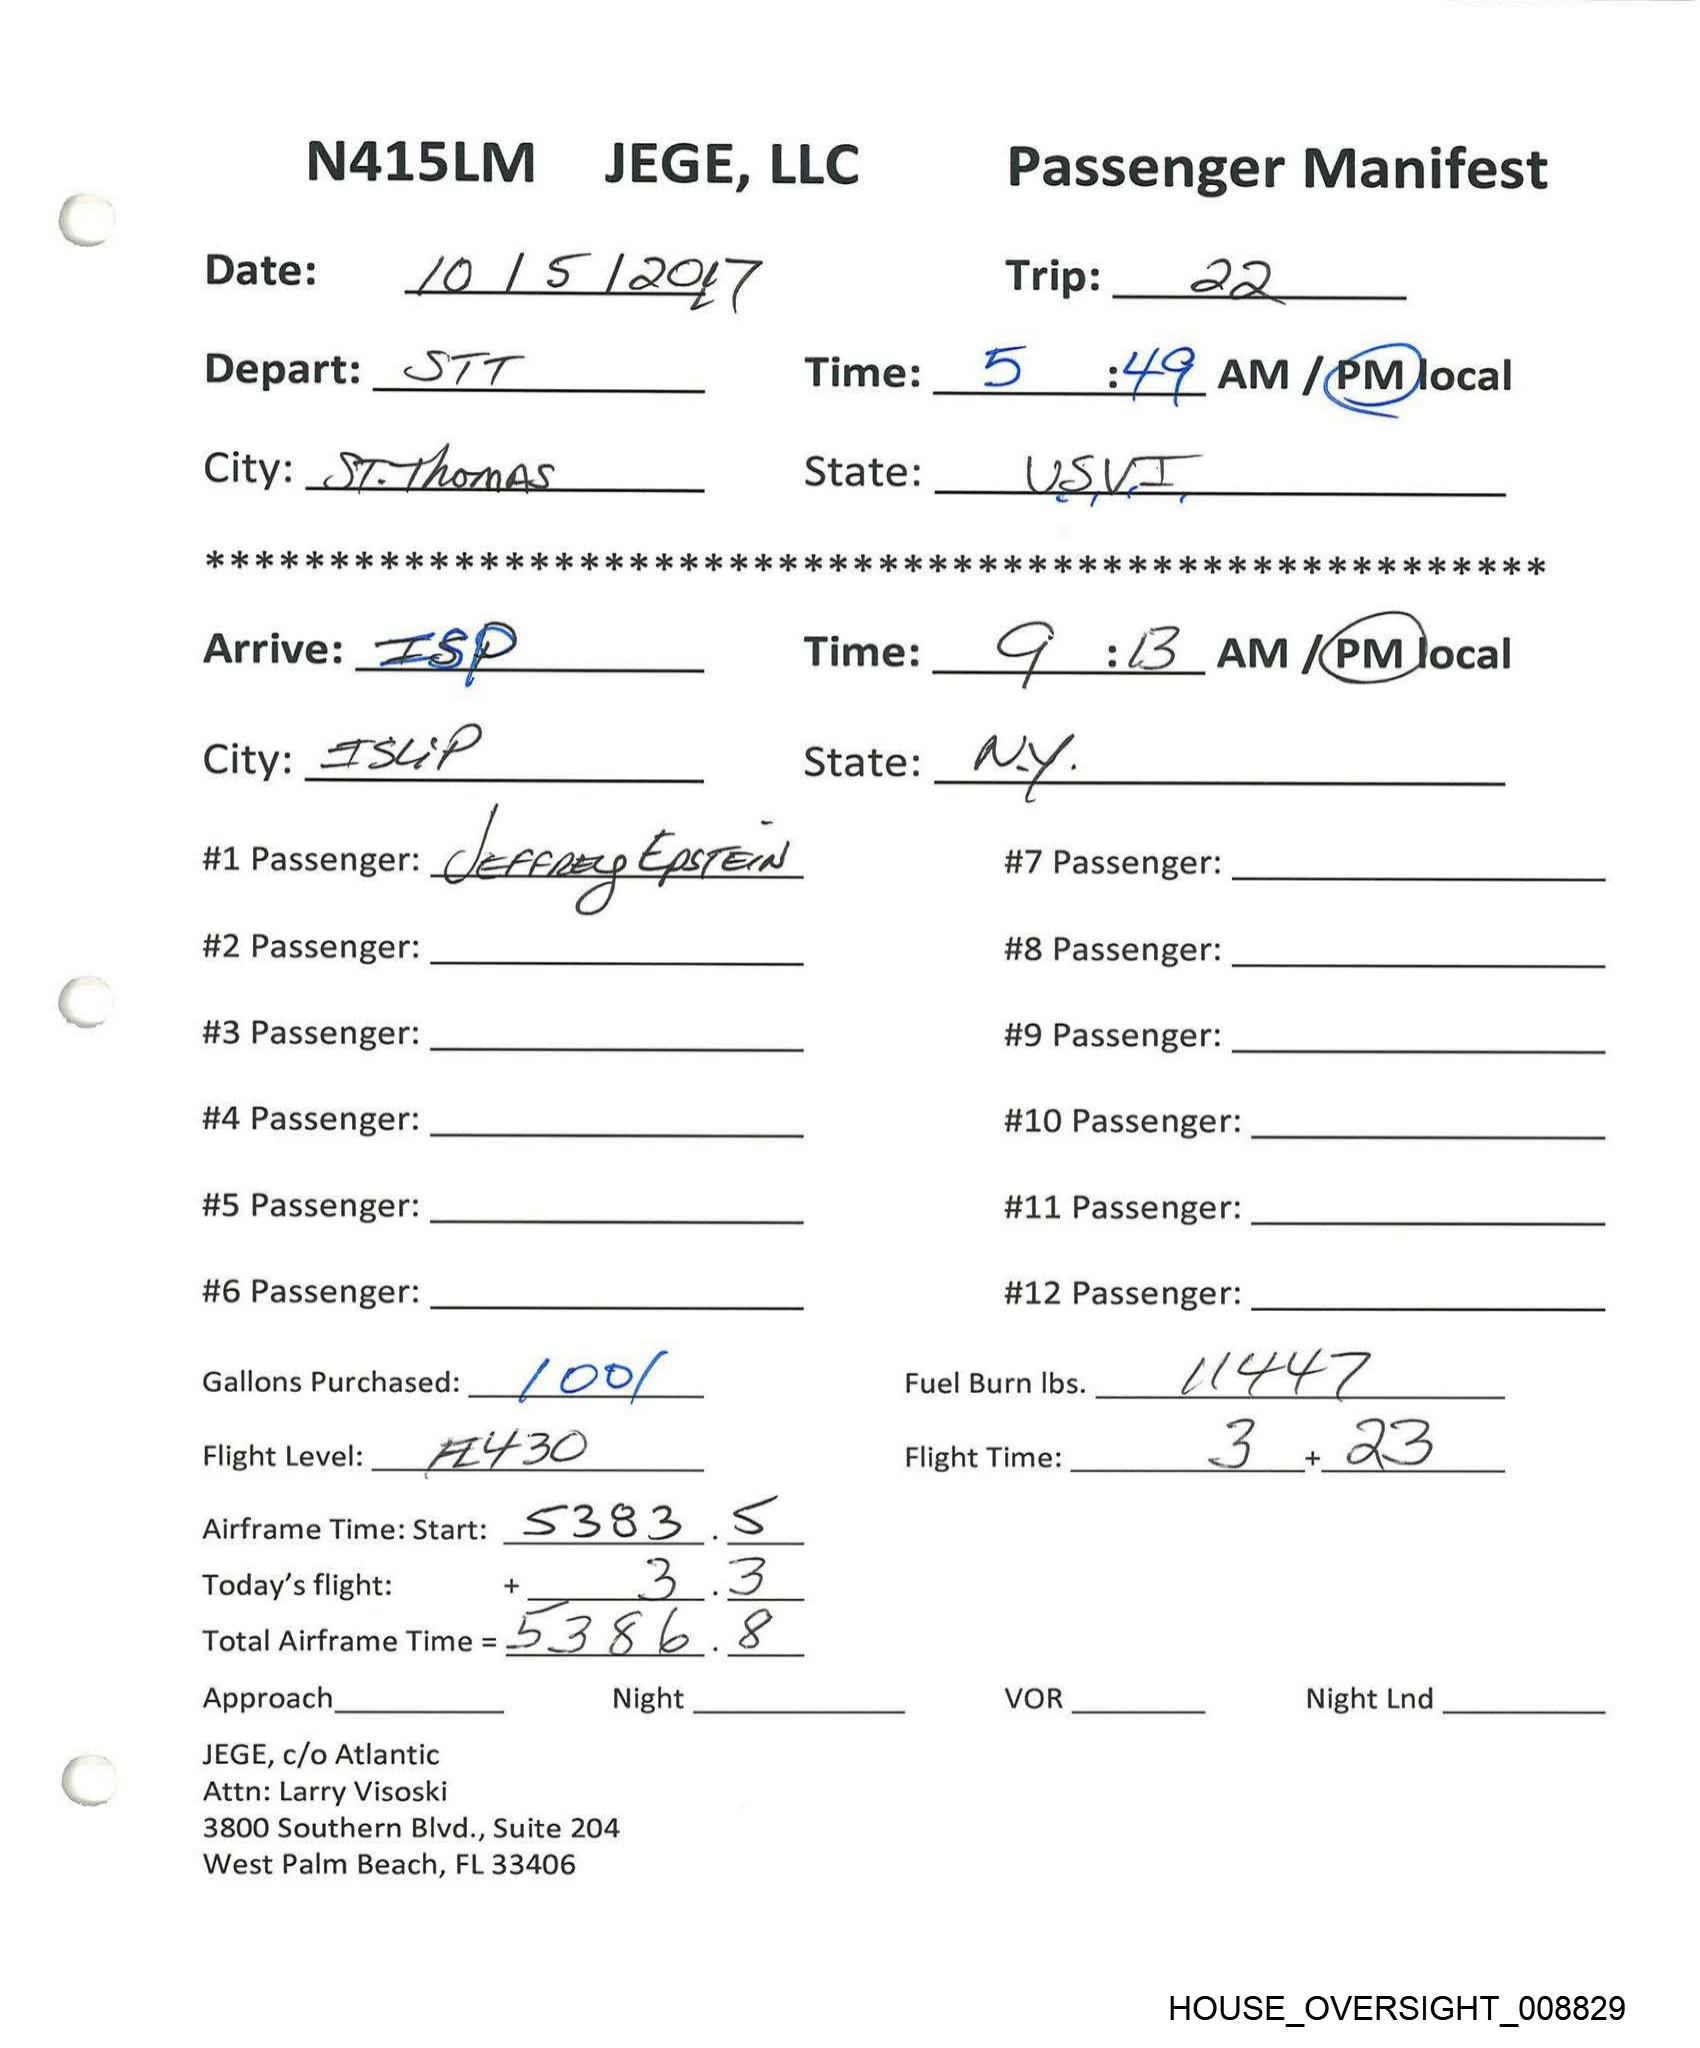 N415LM JEGE, LLC Passenger Manifest
Date: 10 / 5 / 2017 Trip: 22
Depart: STT Time: 5 :49 AM / PM local
City: ST. Thomas State: U.S.V.I.
******************************************************
Arrive: ISP Time: 9 :13 AM / PM local
City: ISLiP State: N.Y.
#1 Passenger: JEFFREY EPSTEIN #7 Passenger:
#2 Passenger: #8 Passenger:
#3 Passenger: #9 Passenger:
#4 Passenger: #10 Passenger:
#5 Passenger: #11 Passenger:
#6 Passenger: #12 Passenger:
Gallons Purchased: 1001 Fuel Burn lbs. 11447
Flight Level: FL430 Flight Time: 3 + 23
Airframe Time: Start: 5383 . 5
Today's flight: + 3 . 3
Total Airframe Time = 5386 . 8
Approach Night VOR Night Lnd
JEGE, c/o Atlantic
Attn: Larry Visoski
3800 Southern Blvd., Suite 204
West Palm Beach, FL 33406
HOUSE_OVERSIGHT_008829